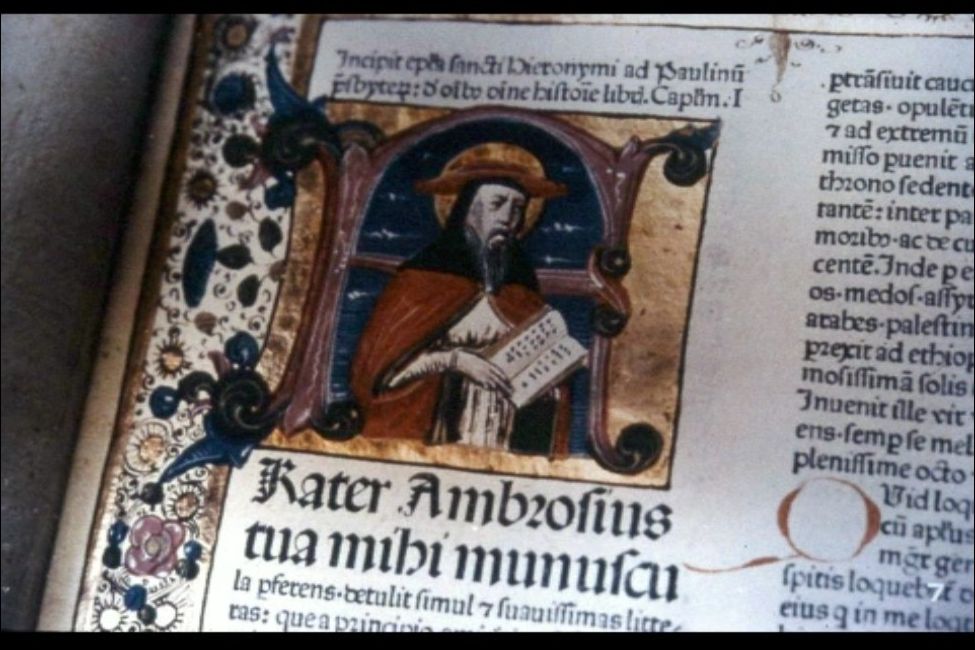 Incipit epl̃a sancti Hieronymi ad Paulinũ
p̃sbyteꝝ: d' oĩbꝰ oine histoie libꝛ. Capl̃m. I
Rater Ambrosius
tua mihi munuscu
la pferens·detulit simul ⁊ suauissimas litte-
ras: que a principio
.ptrãsiuit cauc
getas· opulẽt
⁊ ad extremũ
misso puenit a
throno sedent
tantẽ: inter pa
moribꝰ·ac de cu
centẽ. Inde p e
os·medos·assyr
arabes·palestin
prexit ad ethiop
mosissimã solis
Inuenit ille vir t
ens·semp se mel
plenissime octo
QUid loq
cũ apl̃us
mg̃r gen
spiritis loquebat
eius q in me loqt
7